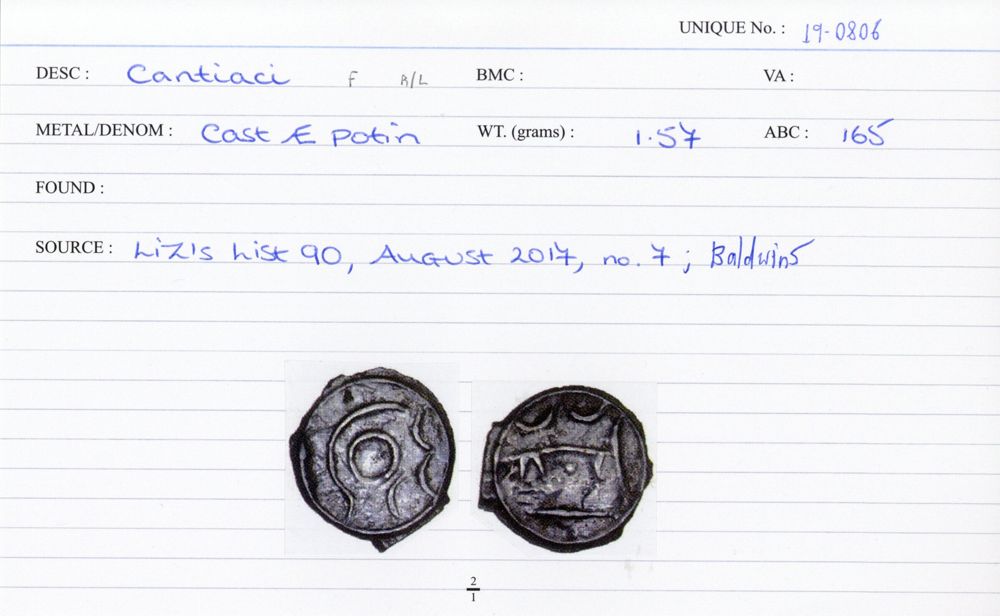 UNIQUE No. : 19-0806
DESC : Cantiaci F A/L BMC : VA :
METAL/DENOM : Cast Æ potin WT. (grams) : 1.57 ABC : 165
FOUND :
SOURCE : Liz's List 90, August 2017, no. 7 ; Baldwins
2
1